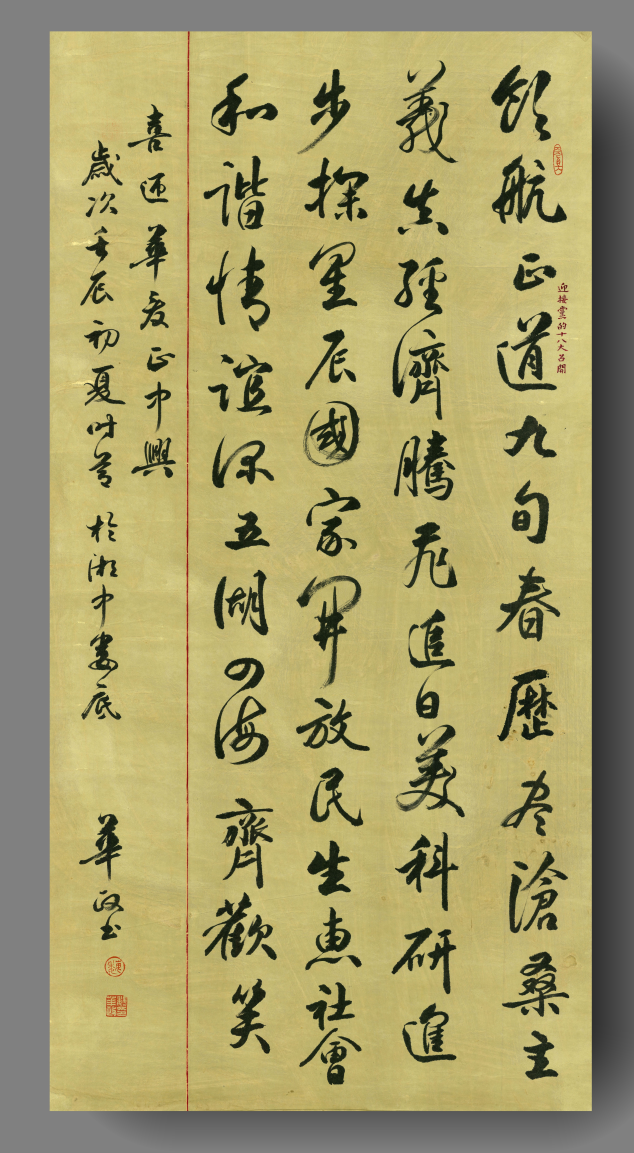 領航正道九旬春歷尽滄桑主
迎接黨的十八大召開
義真經濟騰飛追日美科研進
步探星辰國家開放民生惠社會
和諧情誼深五湖四海齊歡笑
喜迎華夏正中興
歲次壬辰初夏時節 於湘中婁底 華政书